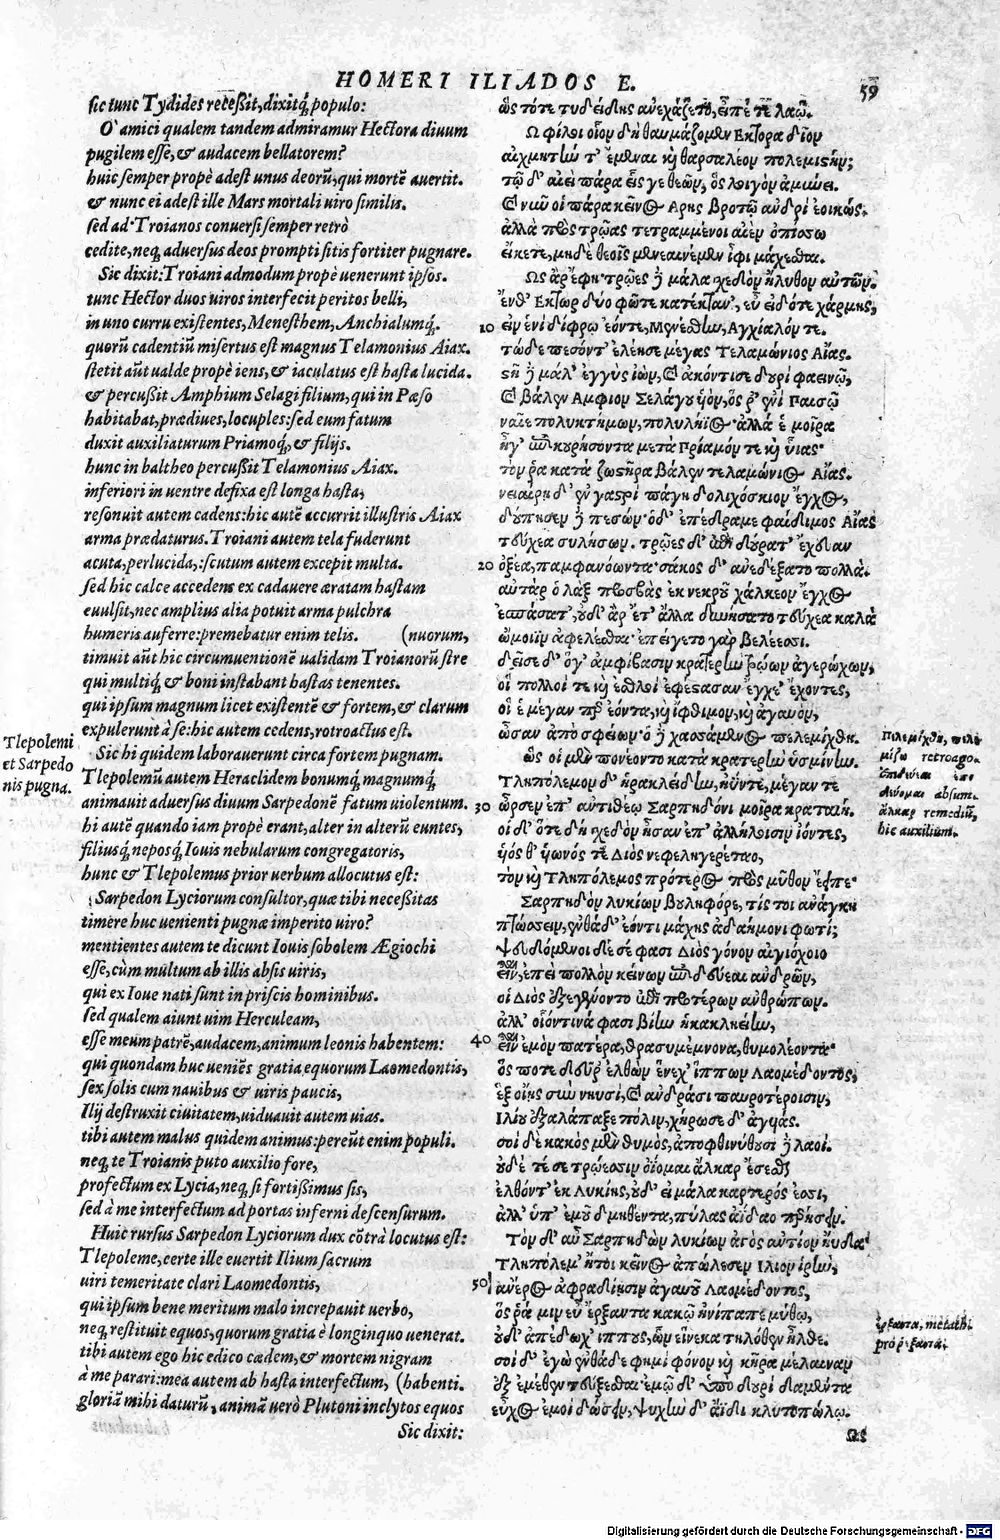 HOMERI ILIADOS E.
59
sic tunc Tydides receßit, dixitq́; populo:
O' amici qualem tandem admiramur Hectora diuum
pugilem esse, & audacem bellatorem?
huic semper propè adest unus deorũ, qui mortẽ auertit.
& nunc ei adest ille Mars mortali uiro similis.
sed ad Troianos conuersi semper retrò
cedite, neq; aduersus deos prompti sitis fortiter pugnare.
Sic dixit: Troiani admodum propè uenerunt ipsos.
tunc Hector duos uiros interfecit peritos belli,
in uno curru existentes, Menesthem, Anchialumq́;.
quorũ cadentiũ misertus est magnus Telamonius Aiax.
stetit aũt ualde propè iens, & iaculatus est hasta lucida.
& percußit Amphium Selagi filium, qui in Pæso
habitabat, prædiues, locuples: sed eum fatum
duxit auxiliaturum Priamoq́;, & filijs.
hunc in baltheo percußit Telamonius Aiax.
inferiori in uentre defixa est longa hasta,
resonuit autem cadens: hic autẽ accurrit illustris Aiax
arma prædaturus. Troiani autem tela fuderunt
acuta, perlucida,: scutum autem excepit multa.
sed hic calce accedens ex cadauere æratam hastam
euulsit, nec amplius alia potuit arma pulchra
humeris auferre: premebatur enim telis. (nuorum,
timuit aũt hic circumuentionẽ ualidam Troianorũ stre
qui multiq́; & boni instabant hastas tenentes.
qui ipsum magnum licet existentẽ & fortem, & clarum
expulerunt à se: hic autem cedens, rotroactus est.
Sic hi quidem laborauerunt circa fortem pugnam.
Tlepolemũ autem Heraclidem bonumq́; magnumq́;
animauit aduersus diuum Sarpedonẽ fatum uiolentum.
hi autẽ quando iam propè erant, alter in alterũ euntes,
filiusq́; neposq́; Iouis nebularum congregatoris,
hunc & Tlepolemus prior uerbum allocutus est:
Sarpedon Lyciorum consultor, quæ tibi necessitas
timère huc uenienti pugnæ imperito uiro?
mentientes autem te dicunt Iouis sobolem Ægiochi
esse, cùm multum ab illis absis uiris,
qui ex Ioue nati sunt in priscis hominibus.
sed qualem aiunt uim Herculeam,
esse meum patrẽ, audacem, animum leonis habentem:
qui quondam huc ueniẽs gratia equorum Laomedontis,
sex solis cum nauibus & uiris paucis,
Ilij destruxit ciuitatem, uiduauit autem uias.
tibi autem malus quidem animus: pereũt enim populi.
neq; te Troianis puto auxilio fore,
profectum ex Lycia, neq; si fortißimus sis,
sed à me interfectum ad portas inferni descensurum.
Huic rursus Sarpedon Lyciorum dux cõtrà locutus est:
Tlepoleme, certe ille euertit Ilium sacrum
uiri temeritate clari Laomedontis,
qui ipsum bene meritum malo increpauit uerbo,
neq; restituit equos, quorum gratia è longinquo uenerat.
tibi autem ego hic edico cædem, & mortem nigram
à me parari: mea autem ab hasta interfectum, (habenti.
gloriã mihi daturũ, animã uerò Plutoni inclytos equos
Sic dixit:
Tlepolemi
et Sarpedo
nis pugna.
ὣς τότε τυδείδης ἀνεχάζετο, εἶπέ τε λαῷ.
Ω φίλοι οἷον δὴ θαυμάζομεν Εκτορα δῖον
αἰχμητήν τ' ἔμεναι καὶ θαρσαλέον πολεμιστήν;
τῷ δ' αἰεὶ πάρα εἷς γε θεῶν, ὃς λοιγὸν ἀμύνει.
καὶ νῦν οἱ πάρα κεῖνος Αρης βροτῷ ἀνδρὶ ἐοικώς.
ἀλλὰ πρὸς τρῶας τετραμμένοι αἰὲν ὀπίσσω
εἴκετε, μηδὲ θεοῖς μενεαινέμεν ἶφι μάχεσθαι.
Ως ἄρ' ἔφη· τρῶες δὲ μάλα σχεδὸν ἤλυθον αὐτῶν.
ἔνθ' Εκτωρ δύο φῶτε κατέκταν', εὖ εἰδότε χάρμης,
10 εἰν ἑνὶ δίφρῳ ἐόντε, Μενέσθην, Αγχίαλόν τε.
τὼ δὲ πεσόντ' ἐλέησε μέγας Τελαμώνιος Αἴας.
στῆ δὲ μάλ' ἐγγὺς ἰών, καὶ ἀκόντισε δουρὶ φαεινῷ,
καὶ βάλεν Αμφιον Σελάγου υἱόν, ὅς ῥ' ἐνὶ Παισῷ
ναῖε πολυκτήμων, πολυλήϊος· ἀλλά ἑ μοῖρα
ἦγ' ἐπικουρήσοντα μετὰ Πρίαμόν τε καὶ υἷας·
τόν ῥα κατὰ ζωστῆρα βάλεν τελαμώνιος Αἴας.
νειαίρῃ δ' ἐν γαστρὶ πάγη δολιχόσκιον ἔγχος,
δούπησεν δὲ πεσών· ὁδ' ἐπέδραμε φαίδιμος Αἴας
τεύχεα συλήσων. τρῶες δ' ἐπὶ δούρατ' ἔχευαν
20 ὀξέα, παμφανόωντα· σάκος δ' ἀνεδέξατο πολλά.
αὐτὰρ ὁ λὰξ προσβὰς ἐκ νεκροῦ χάλκεον ἔγχος
ἐσπάσατ', οὐδ' ἄρ' ἔτ' ἄλλα δυνήσατο τεύχεα καλὰ
ὤμοιϊν ἀφελέσθαι· ἐπείγετο γὰρ βελέεσσι.
δεῖσε δ' ὅγ' ἀμφίβασιν κρατερὴν τρώων ἀγερώχων,
οἳ πολλοί τε καὶ ἐσθλοὶ ἐφέστασαν ἔγχε' ἔχοντες,
οἵ ἑ μέγαν περ ἐόντα, καὶ ἴφθιμον, καὶ ἀγαυόν,
ὦσαν ἀπὸ σφείων· ὁ δὲ χασσάμενος πελεμίχθη.
ὣς οἱ μὲν πονέοντο κατὰ κρατερὴν ὑσμίνην.
Τληπόλεμον δ' ἡρακλείδην, ἠΰντε, μέγαν τε
30 ὦρσεν ἐπ' αὐτιθέῳ Σαρπηδόνι μοῖρα κραταιή.
οἱ δ' ὅτε δὴ σχεδὸν ἦσαν ἐπ' ἀλλήλοισιν ἰόντες,
υἱός θ' υἱωνός τε Διὸς νεφεληγερέταο,
τὸν καὶ Τληπόλεμος πρότερος πρὸς μῦθον ἔειπε·
Σαρπηδὸν λυκίων βουληφόρε, τίς τοι ἀνάγκη
πτώσσειν, ἐνθάδ' ἐόντι μάχης ἀδαήμονι φωτί;
ψευδόμενοι δέ σέ φασι Διὸς γόνον αἰγιόχοιο
εἶναι, ἐπεὶ πολλὸν κείνων ἐπιδεύεαι ἀνδρῶν,
οἳ Διὸς ἐξεγένοντο ἐπὶ προτέρων ἀνθρώπων.
ἀλλ' οἷόντινά φασι βίην ἡρακληείην,
40 εἶναι ἐμὸν πατέρα, θρασυμέμνονα, θυμολέοντα·
ὅς ποτε δεῦρ' ἐλθὼν ἕνεχ' ἵππων Λαομέδοντος,
ἓξ οἴῃς σὺν νηυσί, καὶ ἀνδράσι παυροτέροισιν,
Ιλίου ἐξαλάπαξε πόλιν, χήρωσε δ' ἀγυιάς.
σοὶ δὲ κακὸς μὲν θυμός, ἀποφθινύθουσι δὲ λαοί.
οὐδέ τί σε τρώεσσιν ὀΐομαι ἄλκαρ ἔσεσθαι
ἐλθόντ' ἐκ Λυκίης, οὐδ' εἰ μάλα καρτερός ἐσσι,
ἀλλ' ὑπ' ἐμοῦ δμηθέντα, πύλας ἀΐδαο περήσειν.
Τὸν δ' αὖ Σαρπηδὼν λυκίων ἀγὸς ἀντίον ηὔδα'
Τληπόλεμ' ἤτοι κεῖνος ἀπώλεσεν Ιλιον ἱρήν,
50 ἀνέρος ἀφραδίῃσιν ἀγαυοῦ Λαομέδοντος,
ὅς ῥά μιν εὖ ἕρξαντα κακῷ ἠνίπαπε μύθῳ,
οὐδ' ἀπέδωχ' ἵππους, ὧν εἵνεκα τηλόθεν ἦλθε.
σοὶ δ' ἐγὼ ἐνθάδε φημὶ φόνον καὶ κῆρα μέλαιναν
ἐξ ἐμέθεν τεύξεσθαι· ἐμῷ δ' ὑπὸ δουρὶ δαμέντα
εὖχος ἐμοὶ δώσειν, ψυχὴν δ' ἄϊδι κλυτοπώλῳ.
Ως
πελεμίχθη, πελε
μίζω retroago.
absum.
ἄλκαρ remediũ,
hic auxilium.
ἕρξαντα, metathe.
pro ῥέξαντα.
Digitalisierung gefördert durch die Deutsche Forschungsgemeinschaft - DFG